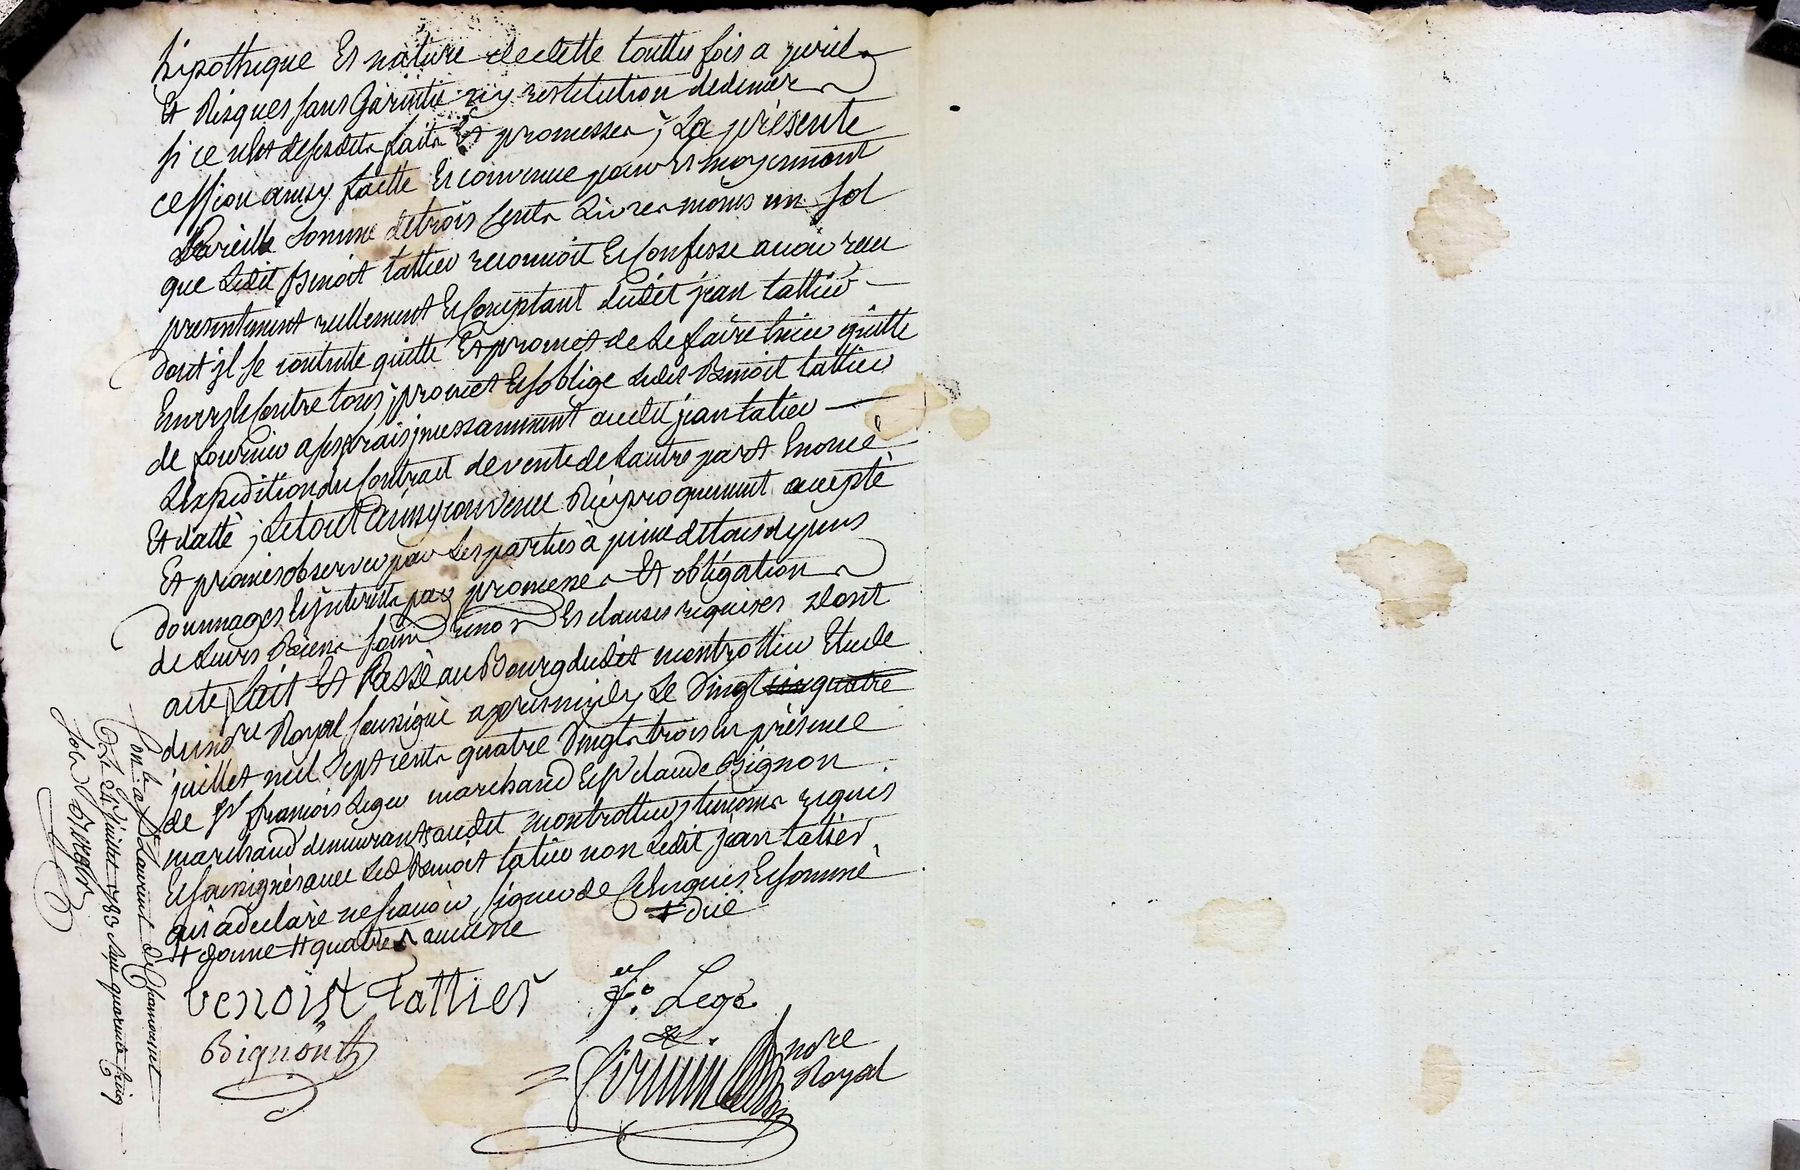 hipothique Et nature de dette touttes fois a peril
Et Risques sans Garintie ny restitution dedenier
si ce nest desesdits faits Et promesses, La présente
cession ainsy faitte Et convenue pour Et moyennant
Pareille Somme detrois Cents Livres moins un Sol
que Ledit Benoit tattier reconnoit Et Confesse avoir reçu
presentement reellement Et Comptant dudit jean tattier
dont jl se contente quitte Et promet de Le faire tenir quitte
Envers Et Contre tous, promet Et soblige Ledit Benoit tattier
de fournir a ses frais jncessamment audit jean tatier
Lexpedition du Contrat de vente de Lautre part Enoncé
Et datté, Le tout ainsy convenu Réciproquement accepté
Et promis observer par Les parties à peine de tous depens
dommages Et jnterests par promesses Et obligation
de Leurs Biens soum renon Et clauses requises Dont
acte, fait Et Passé au Bourg dudit montrottier Etude
du no.re Royal soussigné apres midy Le Vingt quatre
juillet mil Sept cents quatre Vingts trois En présence
de Sr francois Leger marchand Et Sr claude Bignon
marchand demeurants audit montrottier temoins requis
Et soussignés avec Led Benoit tatier non Ledit jean tatier
qui a declaré ne sçavoir signer de Ce Enquis Et sommé
benoist tattier
fo. Legé
Bignon
no.re
Royal
Con.lé a St Laurent de Chamousset
Ce 24 juillet 1783